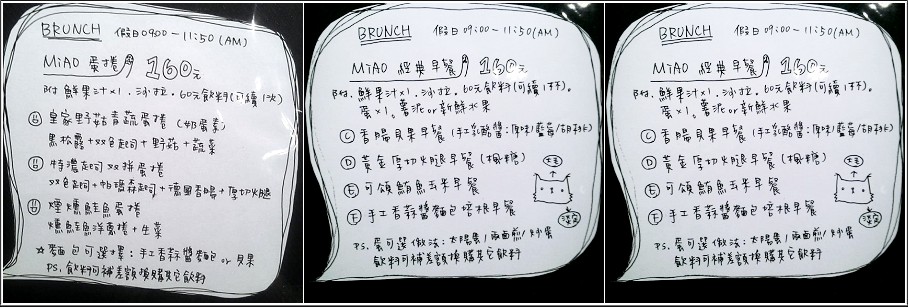 BRUNCH 假日 09:00-11:50(AM)
MiAO 蛋捲 160元
附.鮮果汁x1.沙拉.60元飲料(可續1次)
皇家野菇青蔬蛋捲(奶蛋素)
黑松露+双色起司+野菇+蔬菜
特濃起司双拼蛋捲
双色起司+帕瑪森起司+德國香腸+厚切火腿
煙燻鮭魚蛋捲
燻鮭魚洋蔥捲+生菜
☆麵包可選擇:手工香蒜醬麵包 or 貝果
PS.飲料可補差額換購其它飲料
BRUNCH 假日 09:00-11:50(AM)
MiAO 經典早餐 160元
附.鮮果汁x1.沙拉.60元飲料(可續1杯)。
蛋x1。薯泥or新鮮水果
C 香腸貝果早餐(手工乳酪醬:原味/藍莓/胡桃)
D 黃金厚切火腿早餐(楓糖)
E 可頌鮪魚玉米早餐
F 手工香蒜醬麵包培根早餐
PS.蛋可選做法:太陽蛋/兩面煎/炒蛋
飲料可補差額換購其它飲料
BRUNCH 假日 09:00-11:50(AM)
MiAO 經典早餐 160元
附.鮮果汁x1.沙拉.60元飲料(可續1杯)。
蛋x1。薯泥or新鮮水果
C 香腸貝果早餐(手工乳酪醬:原味/藍莓/胡桃)
D 黃金厚切火腿早餐(楓糖)
E 可頌鮪魚玉米早餐
F 手工香蒜醬麵包培根早餐
PS.蛋可選做法:太陽蛋/兩面煎/炒蛋
飲料可補差額換購其它飲料